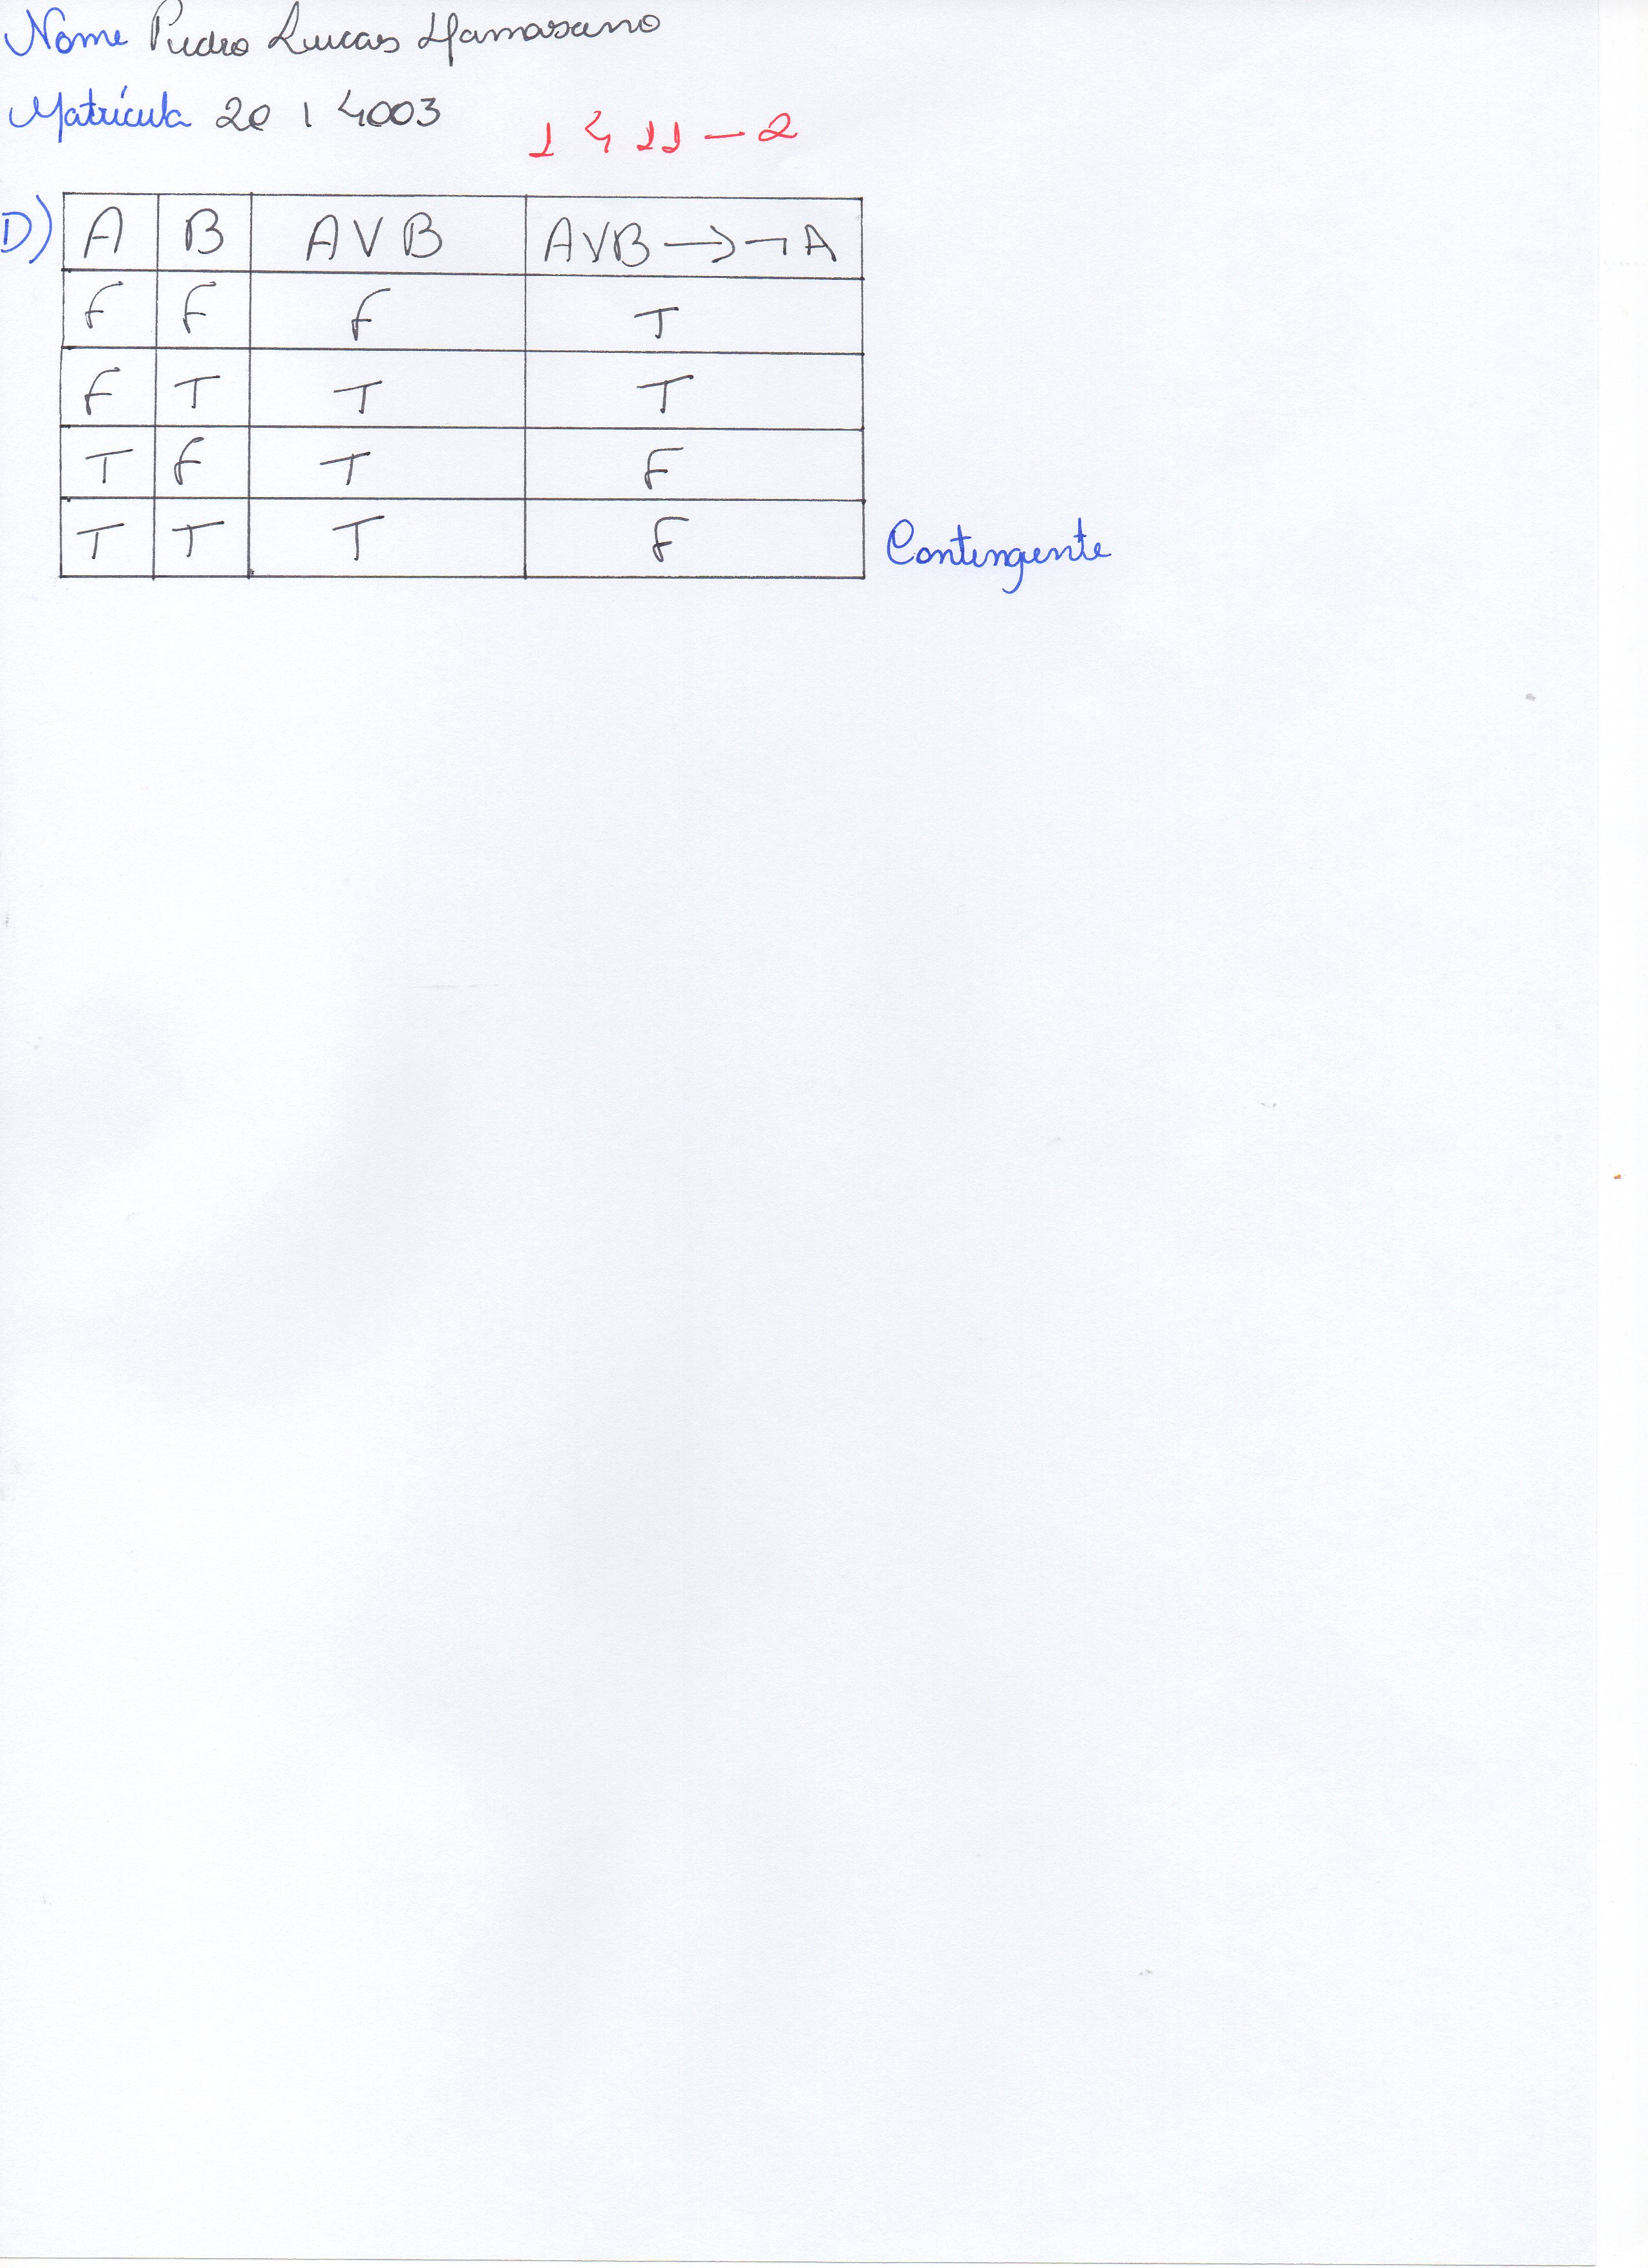 Nome Pedro Lucas Hamasano
Matrícula 20 1 4003
1 4 11 - 2
D)
A B A V B AVB → ¬ A
F F F T
F T T T
T F T F
T T T F Contingente